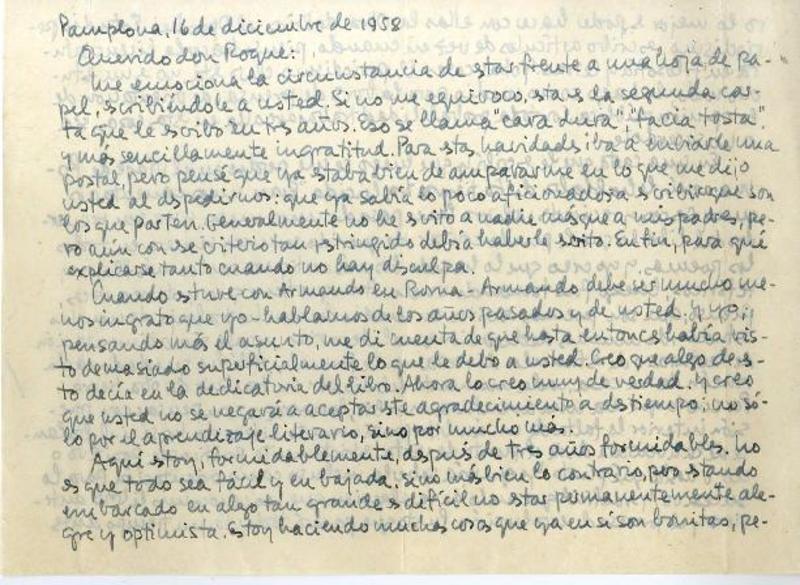 Pamplona, 16 de diciembre de 1958
Querido don Roque:
Me emociona la circunstancia de star frente a una hoja de pa-
pel, scribiéndole a usted. Si no me equivoco, sta es la segunda car-
ta que le scribo en trs años. Eso se llama "cara dura", "facia tosta"
y más sencillamente ingratitud. Para stas navidads iba a enviarle una
postal, pero pensé que ya staba bien de ampararme en lo que me dijo
usted al dspedirnos: que ya sabía lo poco aficionados a scribir que son
los que parten. Generalmente no he scrito a nadie más que a mis padres, pe-
ro aún con se criterio tan rstringido debía haberle scrito. En fin, para qué
explicarse tanto cuando no hay disculpa.
Cuando stuve con Armando en Roma - Armando debe ser mucho me-
nos ingrato que yo - hablamos de los años pasados y de usted. Y yo,
pensando más el asunto, me di cuenta de que hasta entoncs había vis-
to demasiado superficialmente lo que le debo a usted. Creo que algo de s-
to decía en la dedicatoria del libro. Ahora lo creo muy de verdad. Y creo
que usted no se negará a aceptar ste agradecimiento a dstiempo; no só-
lo por el aprendizaje literario, sino por mucho más.
Aquí stoy, formidablemente, dspués de tres años formidables. No
es que todo sea fácil y en bajada, sino más bien lo contrario, pero stando
embarcado en algo tan grande s difícil no star permanentemente ale-
gre y optimista. Estoy haciendo muchas cosas que ya en sí son bonitas, pe-